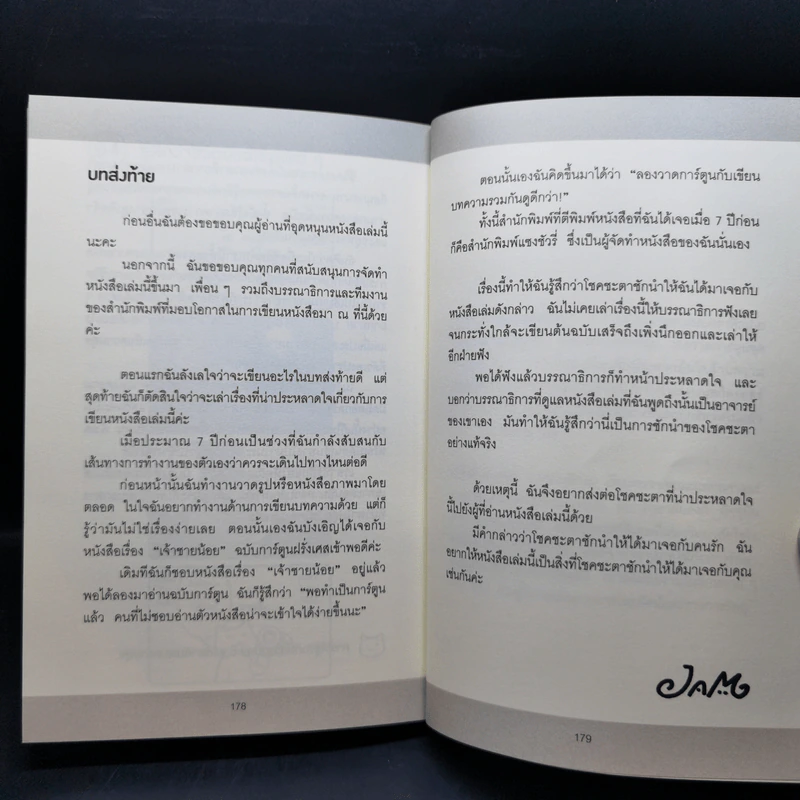 บทส่งท้าย
ก่อนอื่นฉันต้องขอขอบคุณผู้อ่านที่อุดหนุนหนังสือเล่มนี้
นะคะ
นอกจากนี้ ฉันขอขอบคุณทุกคนที่สนับสนุนการจัดทำ
หนังสือเล่มนี้ขึ้นมา เพื่อน ๆ รวมถึงบรรณาธิการและทีมงาน
ของสำนักพิมพ์ที่มอบโอกาสในการเขียนหนังสือมา ณ ที่นี้ด้วย
ค่ะ
ตอนแรกฉันลังเลใจว่าจะเขียนอะไรในบทส่งท้ายดี แต่
สุดท้ายฉันก็ตัดสินใจว่าจะเล่าเรื่องที่น่าประหลาดใจเกี่ยวกับการ
เขียนหนังสือเล่มนี้ค่ะ
เมื่อประมาณ 7 ปีก่อนเป็นช่วงที่ฉันกำลังสับสนกับ
เส้นทางการทำงานของตัวเองว่าควรจะเดินไปทางไหนต่อดี
ก่อนหน้านั้นฉันทำงานวาดรูปหรือหนังสือภาพมาโดย
ตลอด ในใจฉันอยากทำงานด้านการเขียนบทความด้วย แต่ก็
รู้ว่ามันไม่ใช่เรื่องง่ายเลย ตอนนั้นเองฉันบังเอิญได้เจอกับ
หนังสือเรื่อง “เจ้าชายน้อย” ฉบับการ์ตูนฝรั่งเศสเข้าพอดีค่ะ
เดิมทีฉันก็ชอบหนังสือเรื่อง “เจ้าชายน้อย” อยู่แล้ว
พอได้ลองมาอ่านฉบับการ์ตูน ฉันก็รู้สึกว่า “พอทำเป็นการ์ตูน
แล้ว คนที่ไม่ชอบอ่านตัวหนังสือน่าจะเข้าใจได้ง่ายขึ้นนะ”
178
ตอนนั้นเองฉันคิดขึ้นมาได้ว่า “ลองวาดการ์ตูนกับเขียน
บทความรวมกันดูดีกว่า!”
ทั้งนี้สำนักพิมพ์ที่ตีพิมพ์หนังสือที่ฉันได้เจอเมื่อ 7 ปีก่อน
ก็คือสำนักพิมพ์แซงชัวรี่ ซึ่งเป็นผู้จัดทำหนังสือของฉันนั่นเอง
เรื่องนี้ทำให้ฉันรู้สึกว่าโชคชะตาชักนำให้ฉันได้มาเจอกับ
หนังสือเล่มดังกล่าว ฉันไม่เคยเล่าเรื่องนี้ให้บรรณาธิการฟังเลย
จนกระทั่งใกล้จะเขียนต้นฉบับเสร็จถึงเพิ่งนึกออกและเล่าให้
อีกฝ่ายฟัง
พอได้ฟังแล้วบรรณาธิการก็ทำหน้าประหลาดใจ และ
บอกว่าบรรณาธิการที่ดูแลหนังสือเล่มที่ฉันพูดถึงนั้นเป็นอาจารย์
ของเขาเอง มันทำให้ฉันรู้สึกว่านี่เป็นการชักนำของโชคชะตา
อย่างแท้จริง
ด้วยเหตุนี้ ฉันจึงอยากส่งต่อโชคชะตาที่น่าประหลาดใจ
นี้ไปยังผู้ที่อ่านหนังสือเล่มนี้ด้วย
มีคำกล่าวว่าโชคชะตาชักนำให้ได้มาเจอกับคนรัก ฉัน
อยากให้หนังสือเล่มนี้เป็นสิ่งที่โชคชะตาชักนำให้ได้มาเจอกับคุณ
เช่นกันค่ะ
JAM
179